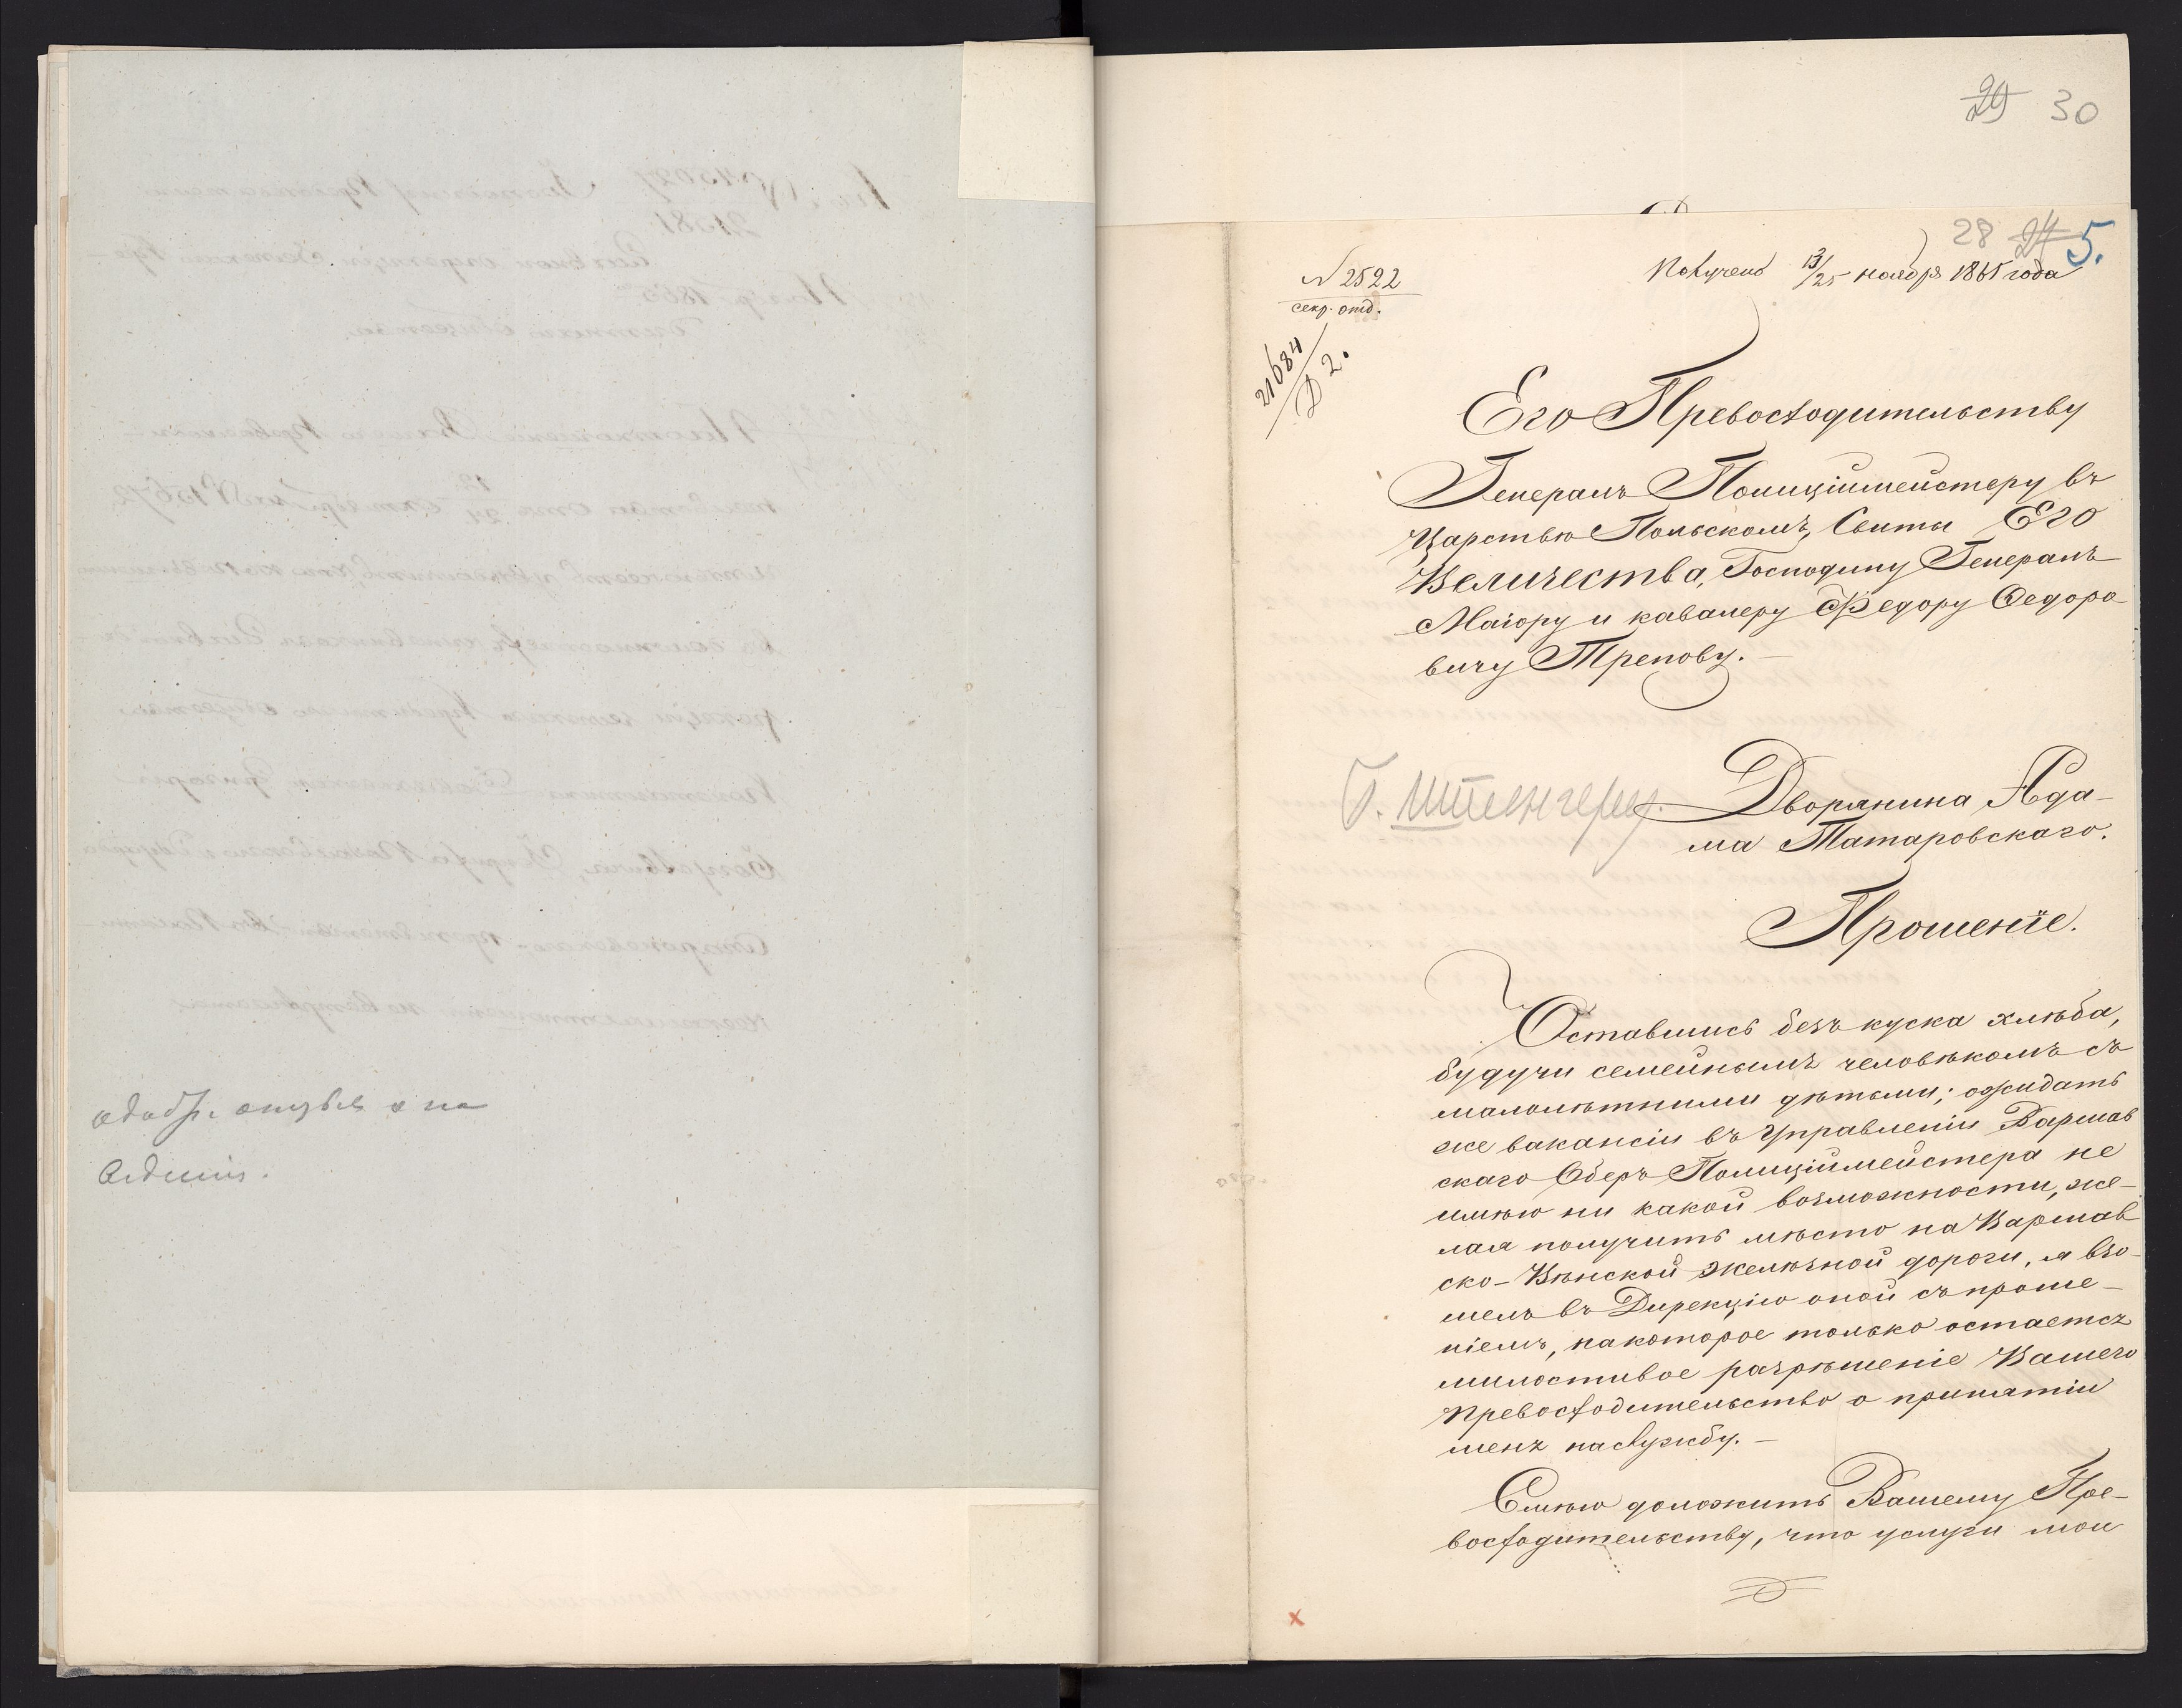 29 30
28 24 5.
№ 2522
секр. отд.
Получено 13/25 ноября 1865 года
21684
Д 2.
Его Превосходительству
Генералъ Полиціймейстеру въ
Царствѣ Польскомъ, Свиты Его
Величества, Господину Генералъ
Маіору и кавалеру Федору Федоро
вичу Трепову. —
Дворянина Ада-
ма Татаровскаго.
Прошеніе.
Оставшись безъ куска хлѣба,
будучи семейнымъ человѣкомъ съ
малолѣтними дѣтьми; ожидать
же вакансіи въ Управленіи Варшав
скаго Оберъ Полиціймейстера не
имѣю ни какой возможности, же-
лая получить мѣсто на Варшав
ско-Вѣнской желѣзной дороги, я взо-
шелъ въ Дирекцію оной съ проше-
ніемъ, на которое только остается
милостивое разрѣшеніе Вашего
Превосходительство о принятіи
меня на службу. —
Смѣю доложить Вашему Пре-
восходительству, что услуги мои